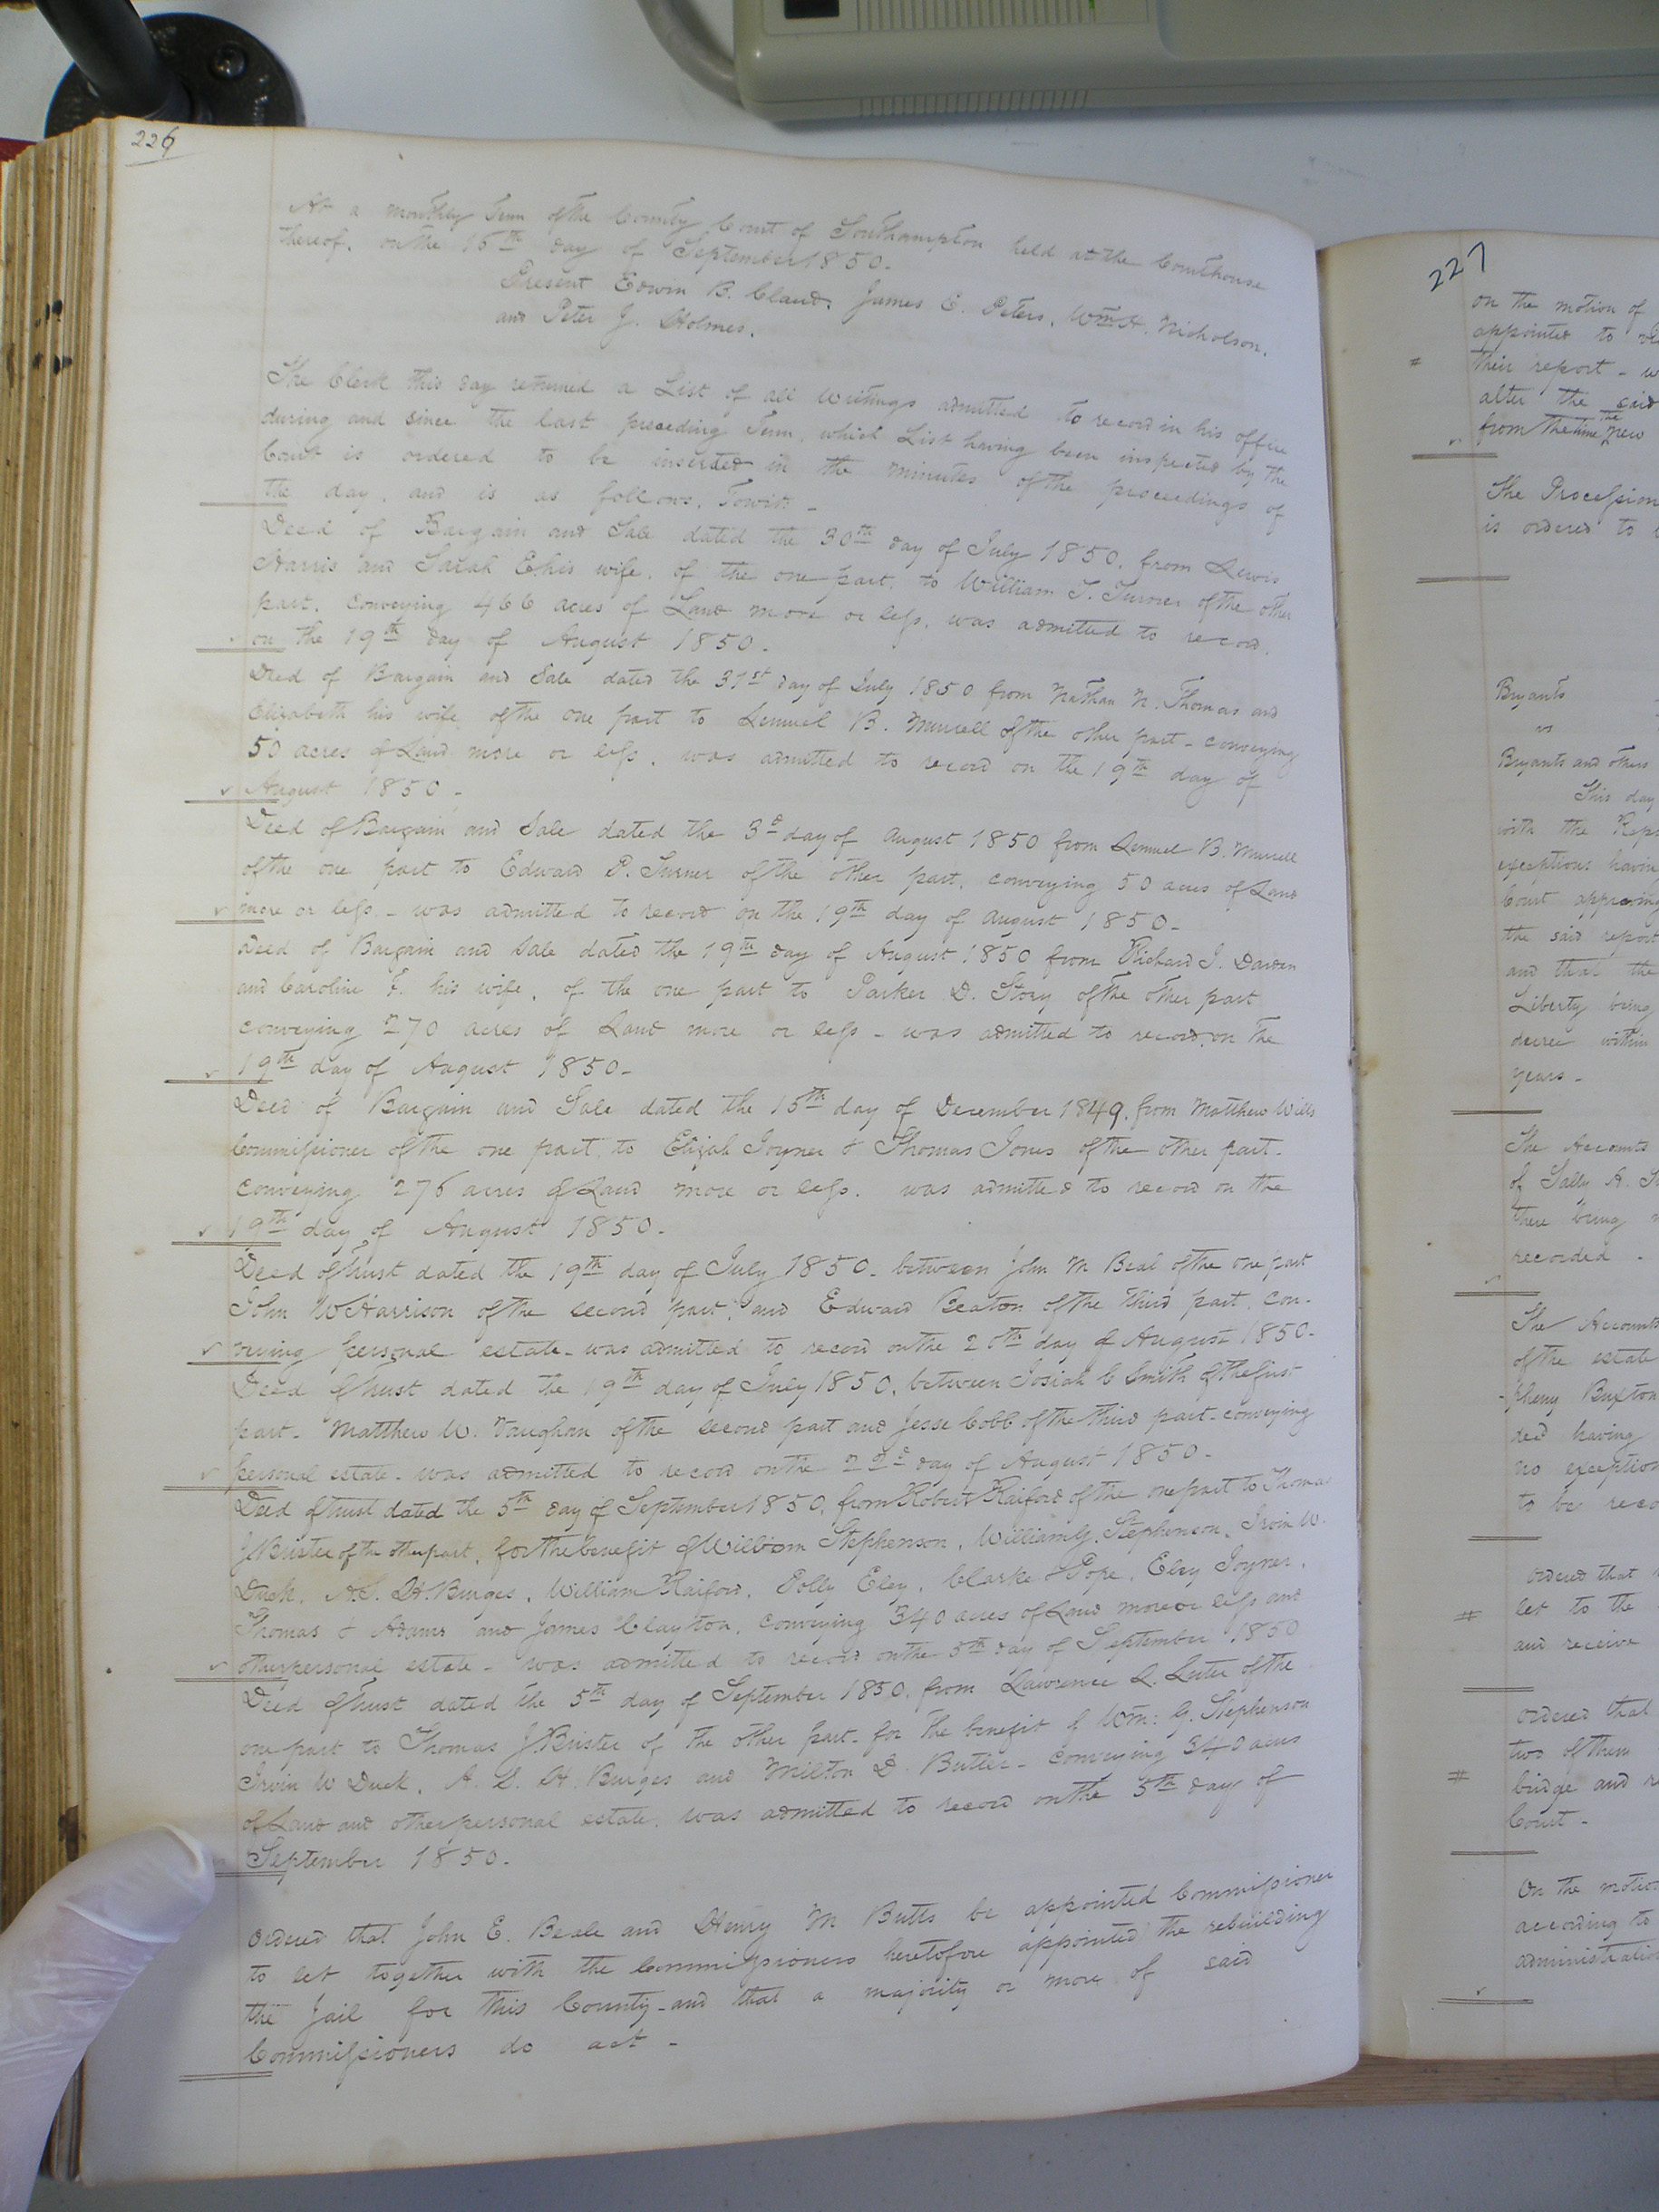 226
At a monthly Term of the County Court of Southampton held at the Courthouse
thereof, on the 16th day of September 1850.
Present Edwin B. Claud, James E. Peters, Wm H. Nicholson,
and Peter J. Holmes.
The Clerk this day returned a List of all writings admitted to record in his office
during and since the last preceding Term, which List having been inspected by the
Court is ordered to be inserted in the minutes of the proceedings of
the day, and is as follows, Towit: -
Deed of Bargain and Sale dated the 30th day of July 1850, from Lewis
Harris and Sarah E. his wife, of the one part, to William T. Turner of the other
part, conveying 466 acres of Land more or less, was admitted to record,
on the 19th day of August 1850.
Deed of Bargain and Sale dated the 31st day of July 1850 from Nathan N. Thomas and
Elizabeth his wife of the one part to Lemuel B. Murrell of the other part - conveying
50 acres of Land more or less, was admitted to record on the 19th day of
August 1850 -
Deed of Bargain and Sale dated the 3d day of August 1850 from Lemuel B. Murrell
of the one part to Edward P. Turner of the other part, conveying 50 acres of Land
more or less, - was admitted to record on the 19th day of August 1850 -
Deed of Bargain and Sale dated the 19th day of August 1850 from Richard J. Darden
and Caroline F. his wife, of the one part to Parker D. Story of the other part
conveying 270 acres of Land more or less - was admitted to record on the
19th day of August 1850 -
Deed of Bargain and Sale dated the 15th day of December 1849, from Matthew Wills
Commissioner of the one part, to Elijah Joyner & Thomas Jones of the other part -
conveying 276 acres of Land more or less, was admitted to record on the
19th day of August 1850 -
Deed of Trust dated the 19th day of July 1850 - between John M Beal of the one part
John W Harrison of the second part, and Edward Beaton of the third part, con-
veying personal estate - was admitted to record on the 20th day of August 1850 -
Deed of Trust dated the 19th day of July 1850, between Josiah C Smith of the first
part - Matthew W. Vaughan of the second part and Jesse Cobb of the third part - conveying
personal estate - was admitted to record on the 22d day of August 1850 -
Deed of Trust dated the 5th day of September 1850, from Robert Raiford of the one part to Thomas
J Brister of the other part, for the benefit of William Stephenson, William G. Stephenson, Irvin W.
Duck, A. S. H. Burges, William Raiford, Polly Eley, Clarke & Pope, Eley Joyner,
Thomas & Adams and James Clayton, conveying 340 acres of Land more or less and
other personal estate - was admitted to record on the 5th day of September 1850
Deed of Trust dated the 5th day of September 1850, from Lawrence L. Luter of the
one part to Thomas J Brister of the other part - for the benefit of Wm: G. Stephenson
Irvin W Duck, A. S. H. Burges and Milton D. Butler - conveying 340 acres
of Land and other personal estate, was admitted to record on the 5th day of
September 1850 -
Ordered that John E. Beale and Henry M Butts be appointed Commissioner
to let together with the Commissioners heretofore appointed the rebuilding
the Jail for this County - and that a majority or more of said
Commissioners do act -
227
on the motion of
appointed to
their report -
alter the said
from the time the new
The Procession
is ordered to
Bryants
vs
Bryants and others
This day
with the Rep
exceptions having
Court approving
the said report
and that the
Liberty being
decree within
years -
The Accounts
of Sally A.
there being
recorded -
The Accounts
of the estate
-pheny Buxton
ded having
no exception
to be reco
Ordered that
# let to the
and receive
Ordered that
two of them
# bridge and
Court -
On the motion
according to
administration